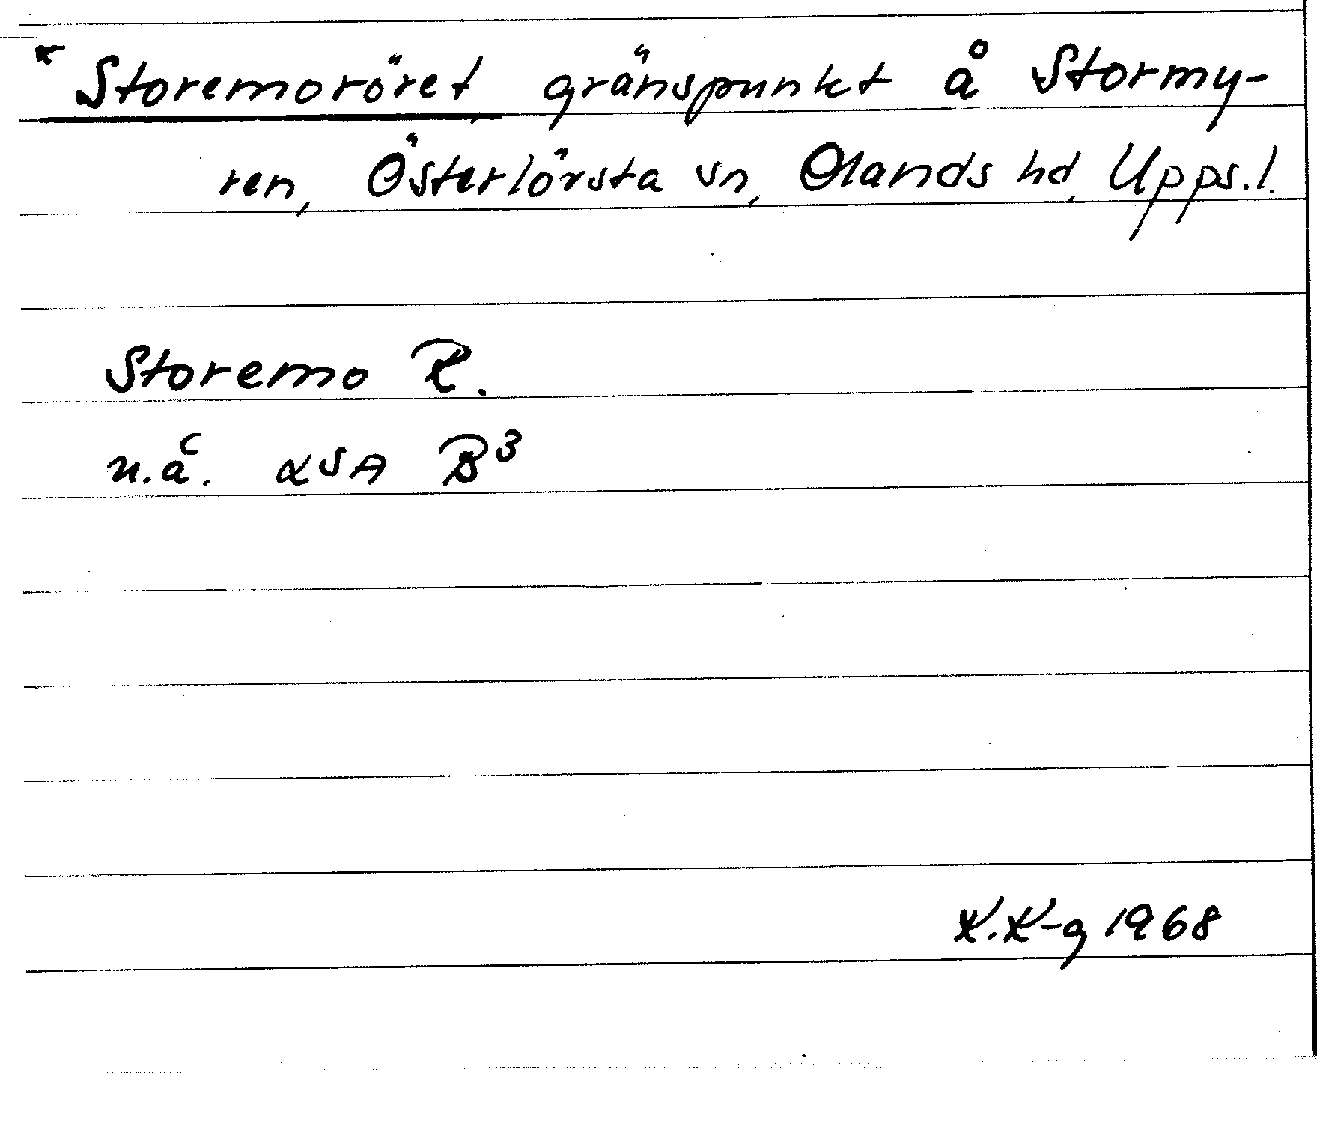 * Storemoröret, gränspunkt å Stormy-
ren, Österlövsta sn, Olands hd, Upps.l.
Storemo R.
u.å. LSA B3
K.K-g 1968